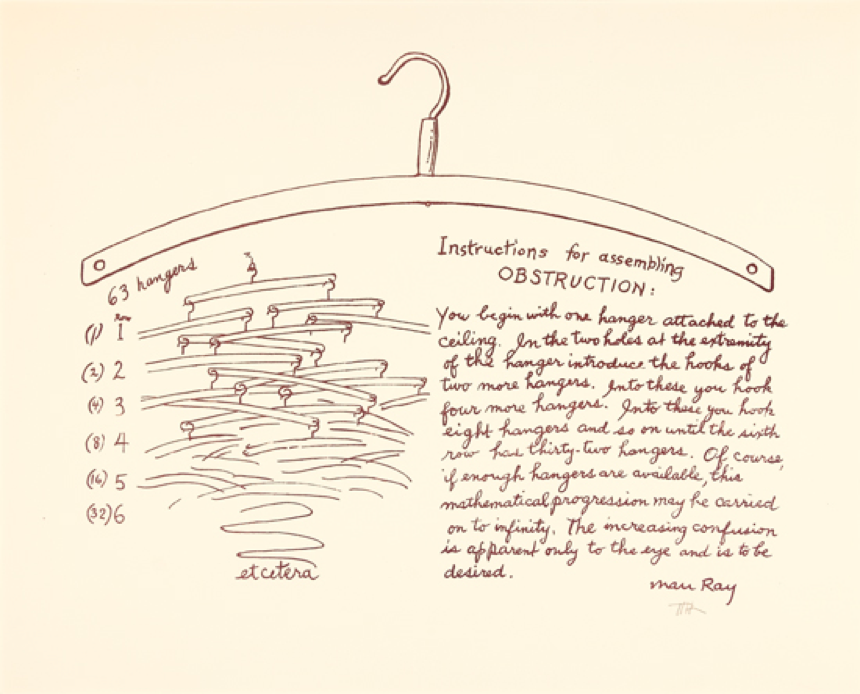 63 hangers
row
(1) 1
(2) 2
(4) 3
(8) 4
(16) 5
(32) 6
et cetera
Instructions for assembling
OBSTRUCTION:
You begin with one hanger attached to the
ceiling. In the two holes at the extremity
of the hanger introduce the hooks of
two more hangers. Into these you hook
four more hangers. Into these you hook
eight hangers and so on until the sixth
row has thirty-two hangers. Of course,
if enough hangers are available, this
mathematical progression may be carried
on to infinity. The increasing confusion
is apparent only to the eye and is to be
desired.
Man Ray